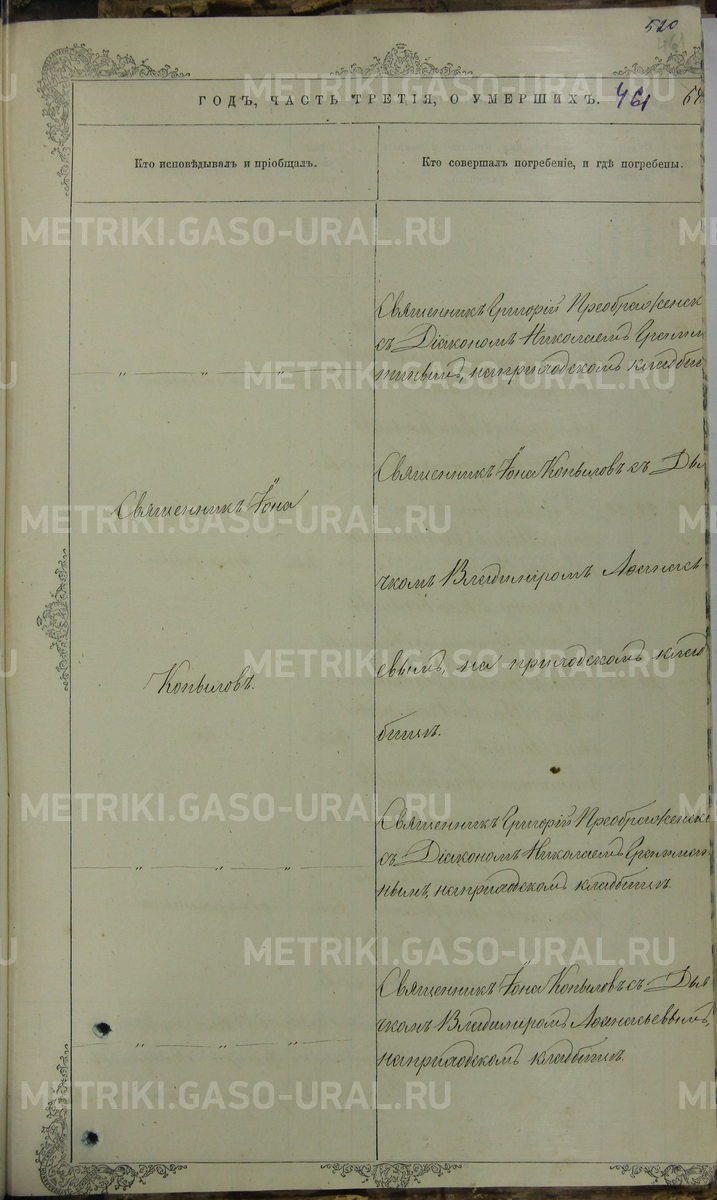 520
461
ГОДЪ, ЧАСТЬ ТРЕТІЯ, О УМЕРШИХЪ. 461
Кто исповѣдывалъ и пріобщалъ.
Кто совершалъ погребеніе, и гдѣ погребены.
Священникъ Григорій Преображенск
съ Діакономъ Николаемъ
на приходскомъ кладби
Священникъ Іона
Копыловъ.
Священникъ Іона Копыловъ съ Дья
чкомъ Владиміромъ Аѳанась
евымъ, на приходскомъ клад
бищѣ.
Священникъ Григорій Преображенск
съ Діакономъ Николаемъ
на приходскомъ кладбищѣ.
Священникъ Іона Копыловъ съ Дья
чкомъ Владиміромъ Аѳанасьевымъ,
на приходскомъ кладбищѣ.
METRIKI.GASO-URAL.RU